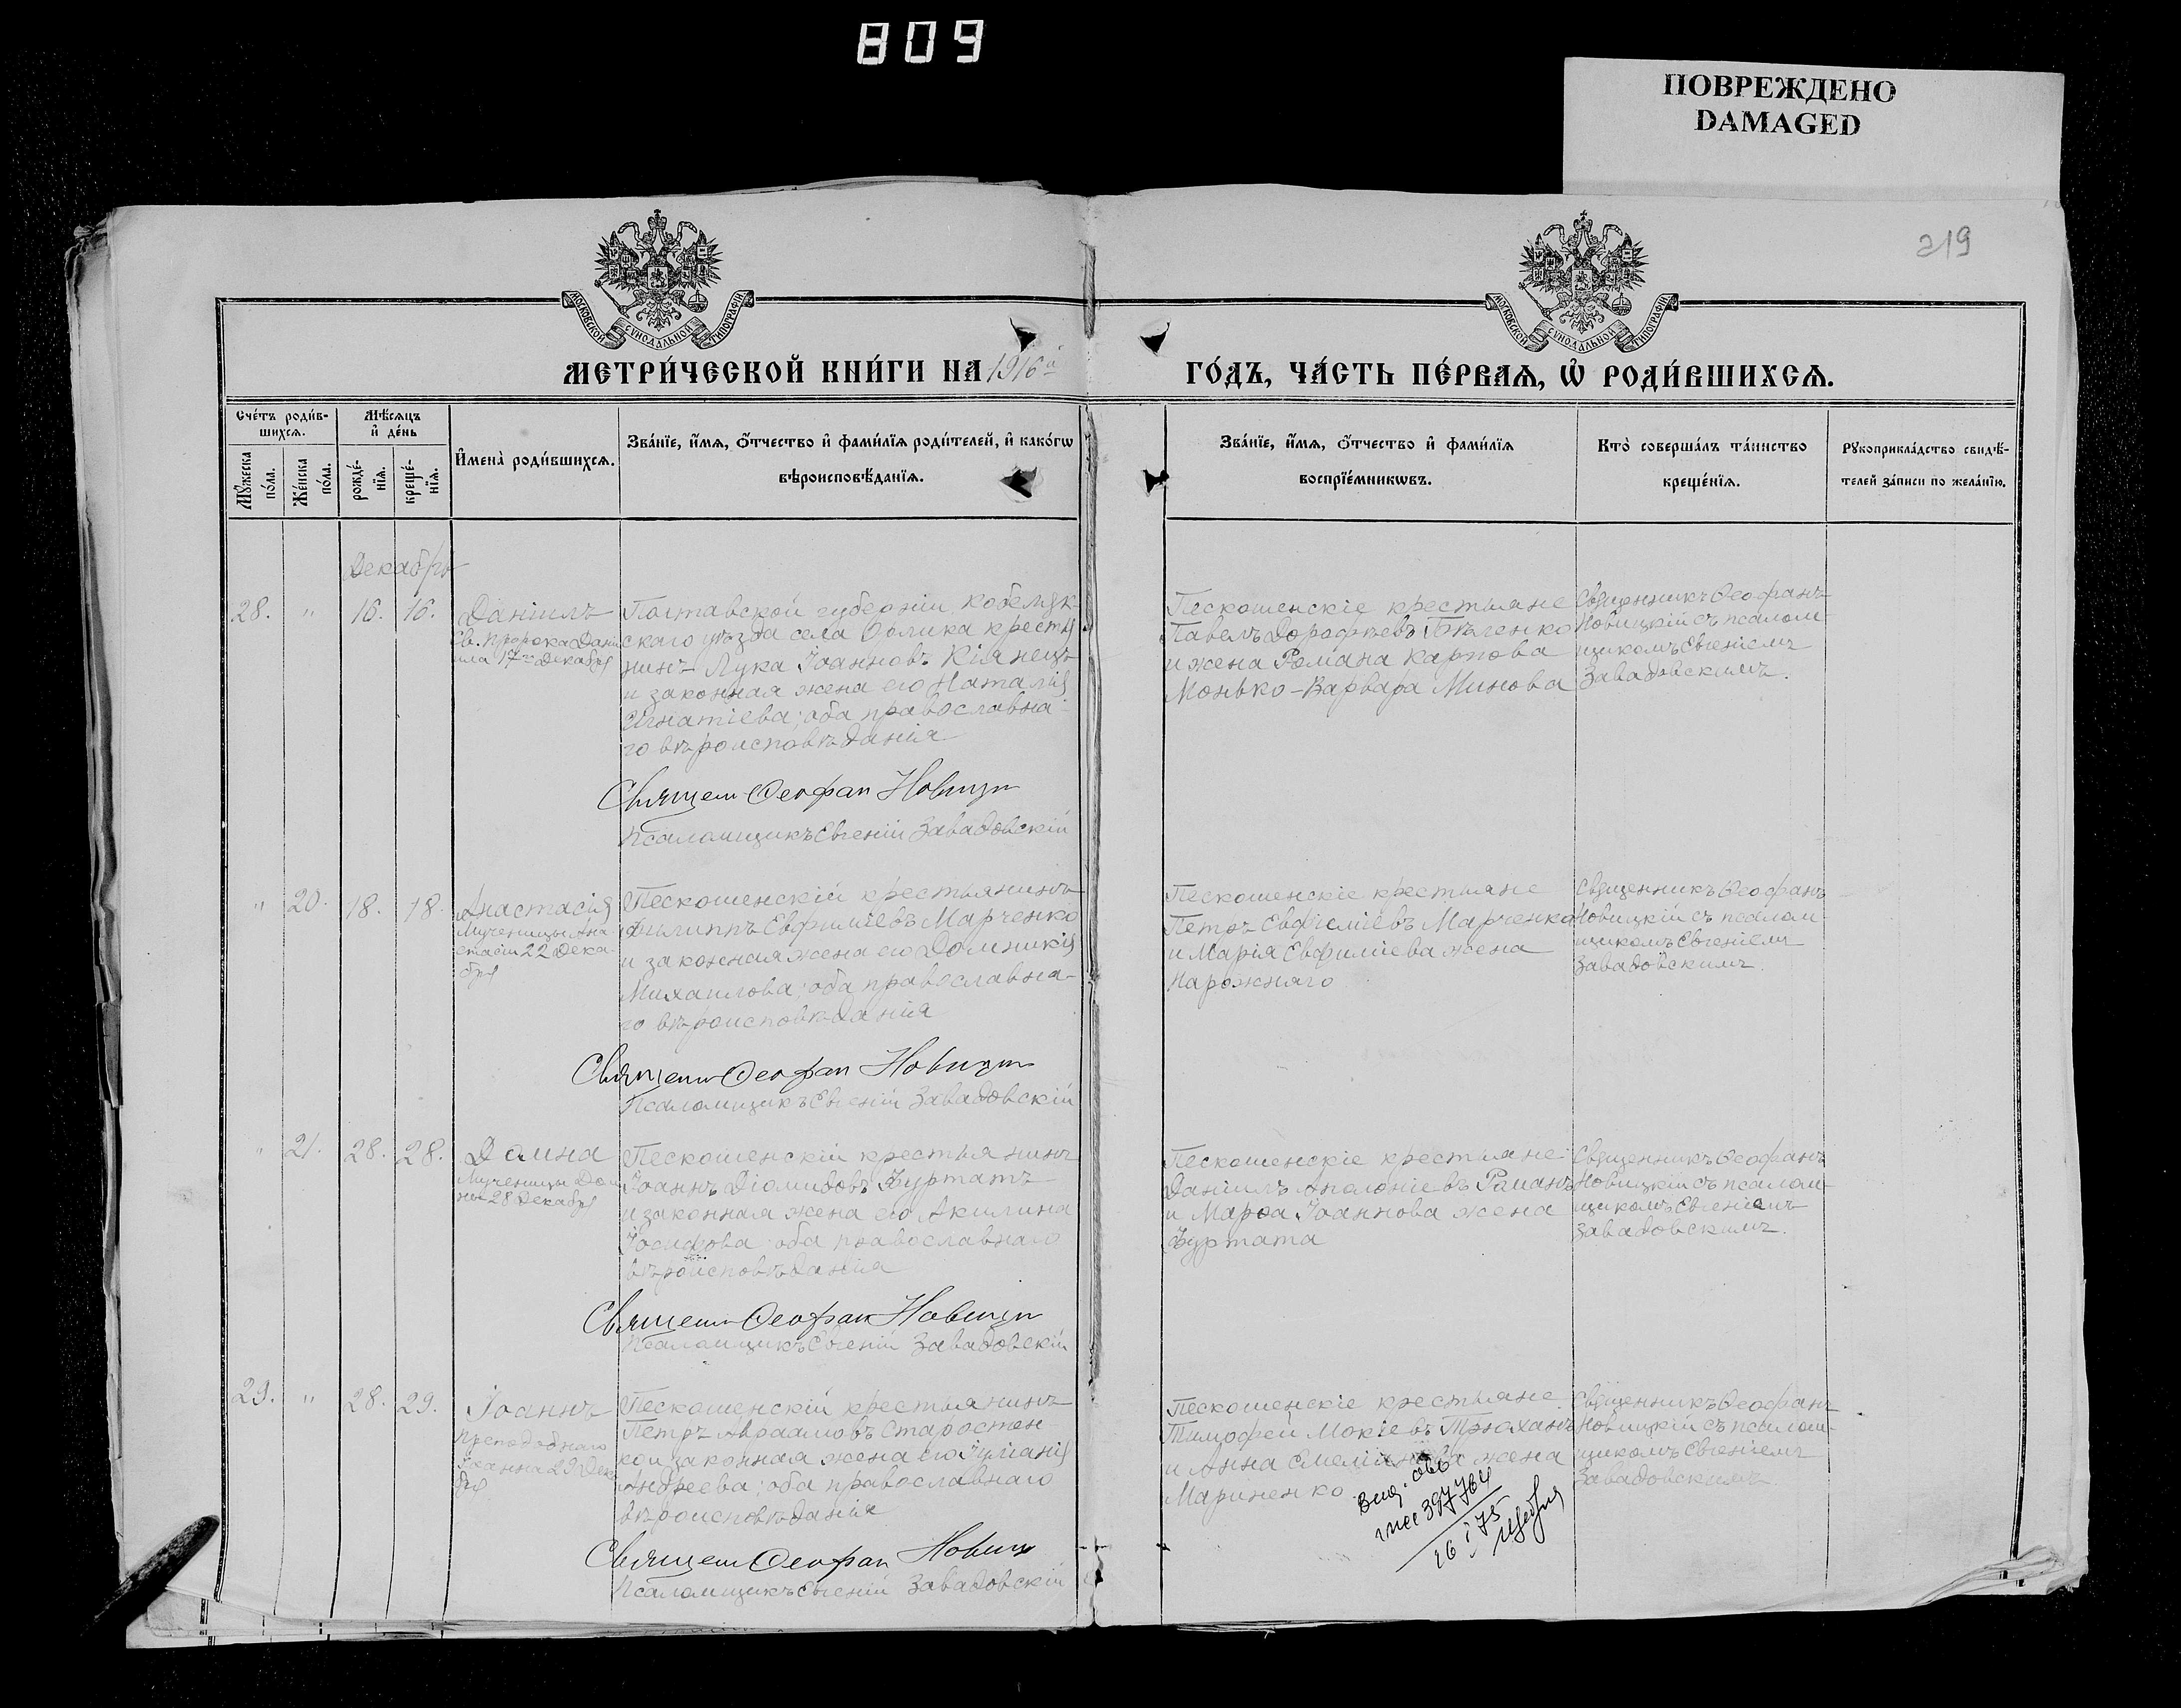 809
ПОВРЕЖДЕНО
DAMAGED
219
МОСКОВСКОЙ СѴНОДАЛЬНОЙ ТИПОГРАФІИ
МОСКОВСКОЙ СѴНОДАЛЬНОЙ ТИПОГРАФІИ
МЕТРИ́ЧЕСКОЙ КНИ́ГИ НА 1916й
ГО́ДЪ, ЧА́СТЬ ПЕ́РВАѦ, Ѡ҆ РОДИ́ВШИХСѦ.
Сче́тъ роди́в-
шихсѧ.
Мѣ́сѧцъ
и҆ де́нь
Мꙋ́жеска
по́ла.
Же́нска
по́ла.
рожде́-
нїѧ.
креще́-
нїѧ.
И҆мена̀ роди́вшихсѧ.
Зва́нїе, и҆́мѧ, ѻ҆́тчество и҆ фами́лїѧ роди́телей, и҆ како́гѡ
вѣроисповѣ́данїѧ.
Зва́нїе, и҆́мѧ, ѻ҆́тчество и҆ фами́лїѧ
воспрїе́мникѡвъ.
Кто̀ соверша́лъ та́инство
креще́нїѧ.
Рꙋкоприкла́дство свидѣ́-
телей за́писи по жела́нїю.
Декабрь
28. " 16. 16.
Даніилъ
Св. Пророка Дані
ила 17го Декабря
Полтавской губерніи Кобеляк-
скаго уѣзда села Орлика крестья
нинъ Лука Іоанновъ Кіянецъ
и законная жена его Наталія
Игнатіева; оба православна-
го вѣроисповѣданія
Священ Ѳеофан Новицк
Псаломщикъ Евгеній Завадовскій
Пескошенскіе крестьяне
Павелъ Дорофѣевъ Бѣленко
и жена Романа Карпова
Монько-Варвара Минова
Священникъ Ѳеофанъ
Новицкій съ псалом-
щикомъ Евгеніемъ
Завадовскимъ.
" 20. 18. 18.
Анастасія
Мученицы Ана
стасіи 22 Дека-
бря
Пескошенскій крестьянинъ
Филиппъ Евфиміевъ Марченко
и законная жена его Домникія
Михаилова; оба православна-
го вѣроисповѣданія
Священ Ѳеофан Новицк
Псаломщикъ Евгеній Завадовскій
Пескошенскіе крестьяне
Петръ Евфиміевъ Марченко
и Марія Евфиміева жена
Нарожняго
Священникъ Ѳеофанъ
Новицкій съ псалом-
щикомъ Евгеніемъ
Завадовскимъ.
" 21. 28. 28.
Домна
Мученицы Дом
ны 28 Декабря
Пескошенскій крестьянинъ
Іоаннъ Діомидовъ Буртатъ
и законная жена его Акилина
Іосифова оба православнаго
вѣроисповѣданія
Священ Ѳеофан Новицк
Псаломщикъ Евгеній Завадовскій
Пескошенскіе крестьяне
Даніилъ Аполоніевъ Романъ
и Марѳа Іоаннова жена
Буртата
Священникъ Ѳеофанъ
Новицкій съ псалом-
щикомъ Евгеніемъ
Завадовскимъ.
29. " 28. 29.
Іоаннъ
Преподобнаго
Іоанна 29 Дека
бря
Пескошенскій крестьянинъ
Петръ Авраамовъ Старостен
ко и законная жена его Іуліанія
Андреева; оба православнаго
вѣроисповѣданія
Священ Ѳеофан Новиц
Псаломщикъ Евгеній Завадовскій
Пескошенскіе крестьяне
Тимофей Мокіевъ Трюханъ
и Анна жена
Мариненко
Священникъ Ѳеофанъ
Новицкій съ псалом-
щикомъ Евгеніемъ
Завадовскимъ
397764